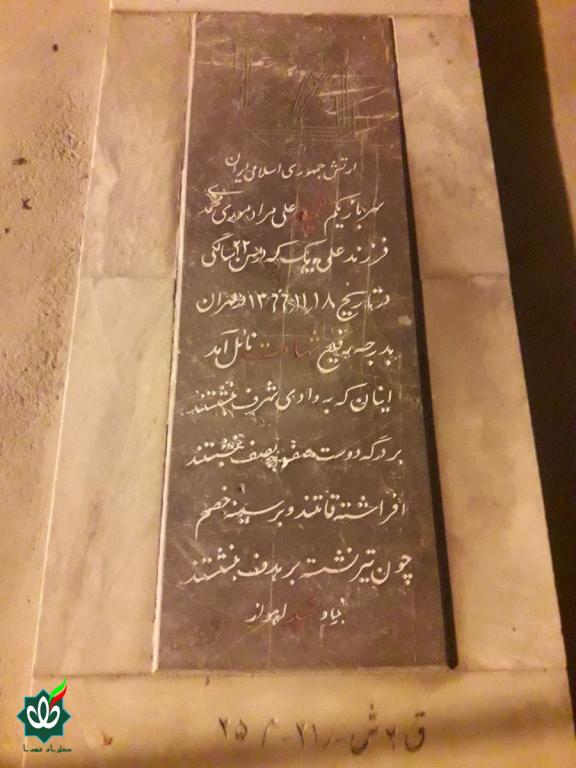 ارتش جمهوری اسلامی ایران
سرباز یکم شهید علی مراد موری
فرزند علی ویک که در سن ۲۲ سالگی
در تاریخ ۱۳۶۶/۱۱/۱۸ در
بدرجه رفیع شهادت نائل آمد
اینان که به وادی شرف بنشستند
بر درگه دوست صف بصف
افراشته قامتند و بر سینه خصم
چون تیر نشسته بر هدف بنشستند
بنیاد شهید اهواز
ق ۲ ش ر ۲۱ م ۲۵
گلزار شهدا